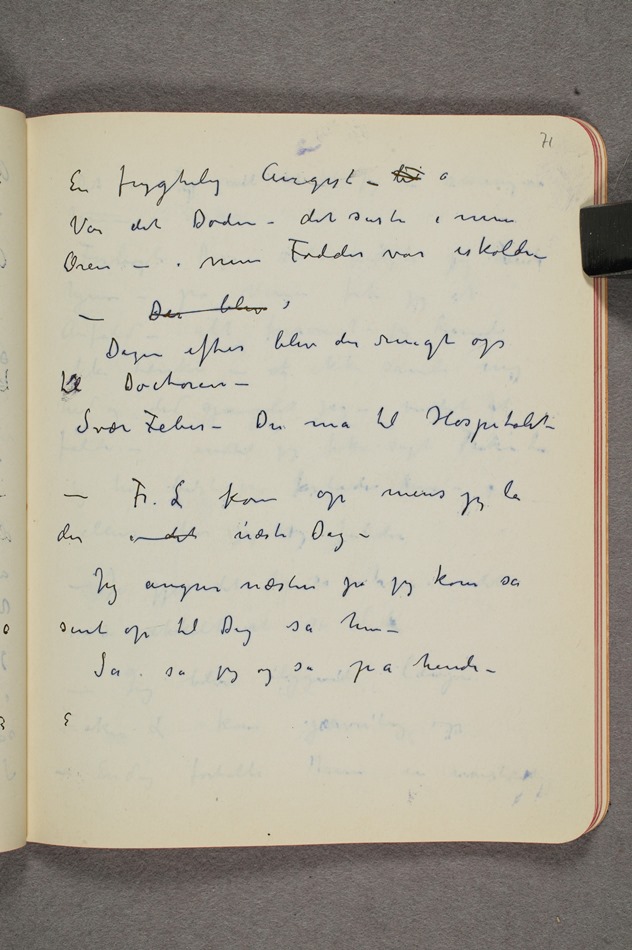 71
En frygtelig Angst –
Var det Døden – det suste i mine
Øren – . mine Fødder var iskolde –
– Der blev
Dagen efter blev der ringt op
til Doctoren –
Svær Feber – Du må til Hospitalet –
– Fr. L kom op mens jeg la
der i det næste Dag –
Jeg angrer næsten på jeg kom sa
sent op til Dig sa hun –
Ja . sa jeg og sa på hende –